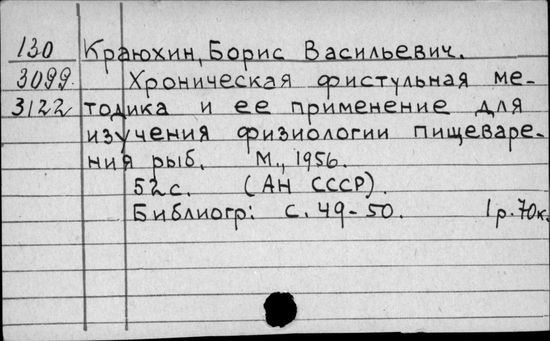 130 Краюхин, Борис Васильевич.
3099. Хроническая фистульная ме-
3122 тодика и ее применение для
изучения физиологии пищеваре-
ния рыб. М., 1956.
52 с. (АН СССР).
Библиогр: с. 49-50. 1р.70к.